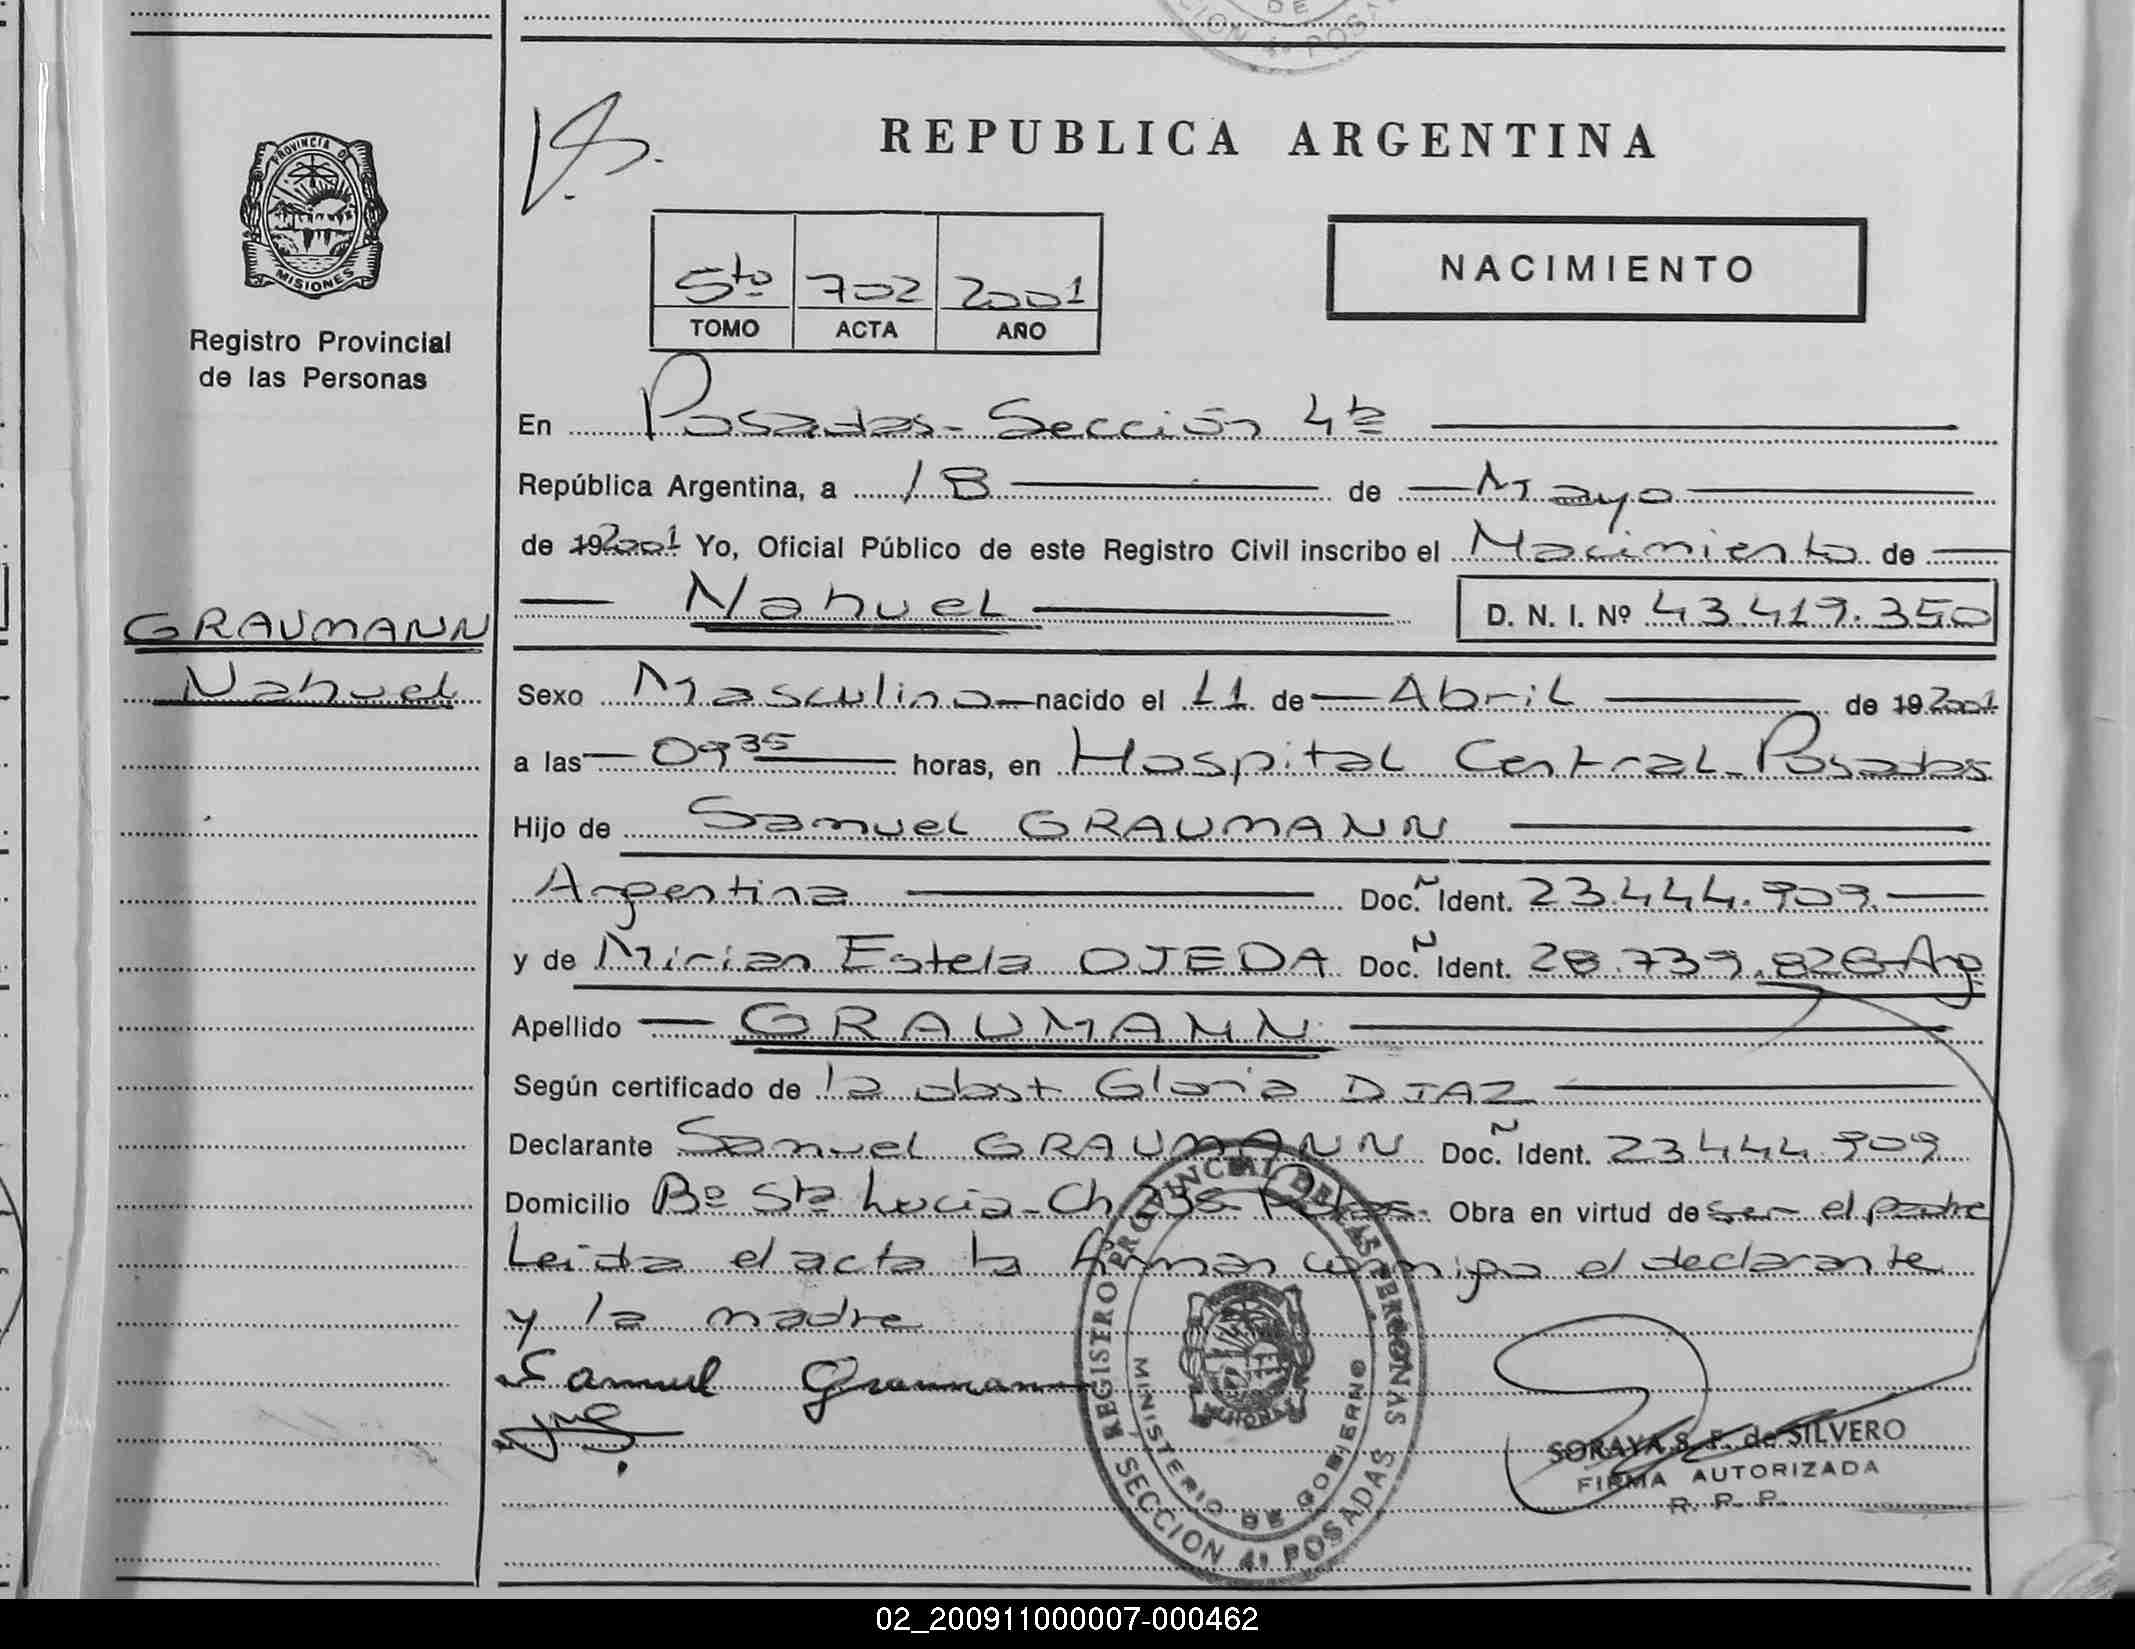 DE
CION 4ª POSA
REPUBLICA ARGENTINA
PROVINCIA D
MISIONES
Registro Provincial
de las Personas
5to 702 2001
TOMO ACTA AÑO
NACIMIENTO
En Posadas - Sección 4ta
República Argentina, a 18 de Mayo
de 192001 Yo, Oficial Público de este Registro Civil inscribo el Nacimiento de
Nahuel
D. N. I. Nº 43.419.350
GRAUMANN
Nahuel
Sexo Masculino nacido el 11 de Abril de 192001
a las 09 35 horas, en Hospital Central - Posadas
Hijo de Samuel GRAUMANN
Argentina Doc. Ñ Ident. 23.444.909
y de Mirian Estela OJEDA Doc. Ñ Ident. 28.739.826 - Arg
Apellido GRAUMANN
Según certificado de la obst Gloria DIAZ
Declarante Samuel GRAUMANN Doc. Ñ Ident. 23.444.909
Domicilio Bº Sta Lucia - Ch Obra en virtud de ser el padre
Leida el acta la firman conmigo el declarante
y la madre
Samuel Graumann
REGISTRO PROVINCIAL DE LAS PERSONAS
MINISTERIO DE GOBIERNO
MISIONES
SECCION 4ª POSADAS
SORAYA S. F. de SILVERO
FIRMA AUTORIZADA
R. P. P.
02_200911000007-000462